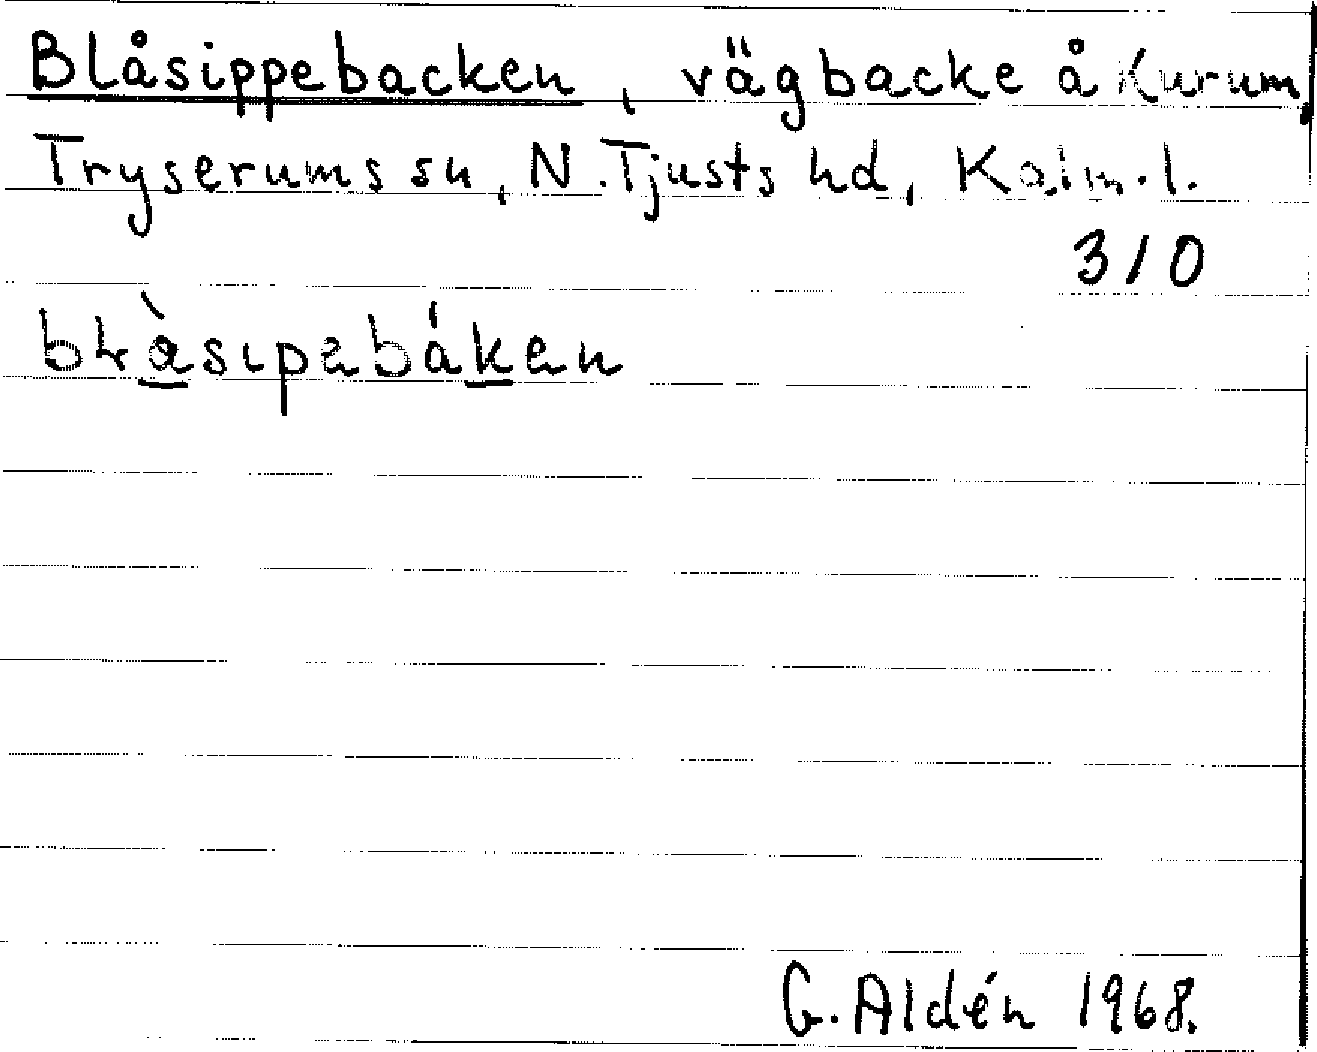 Blåsippebacken, vägbacke å Kurum,
Tryserums sn, N. Tjusts hd, Kalm. l.
310
bɫàsıpəbákən
G. Aldén 1968.